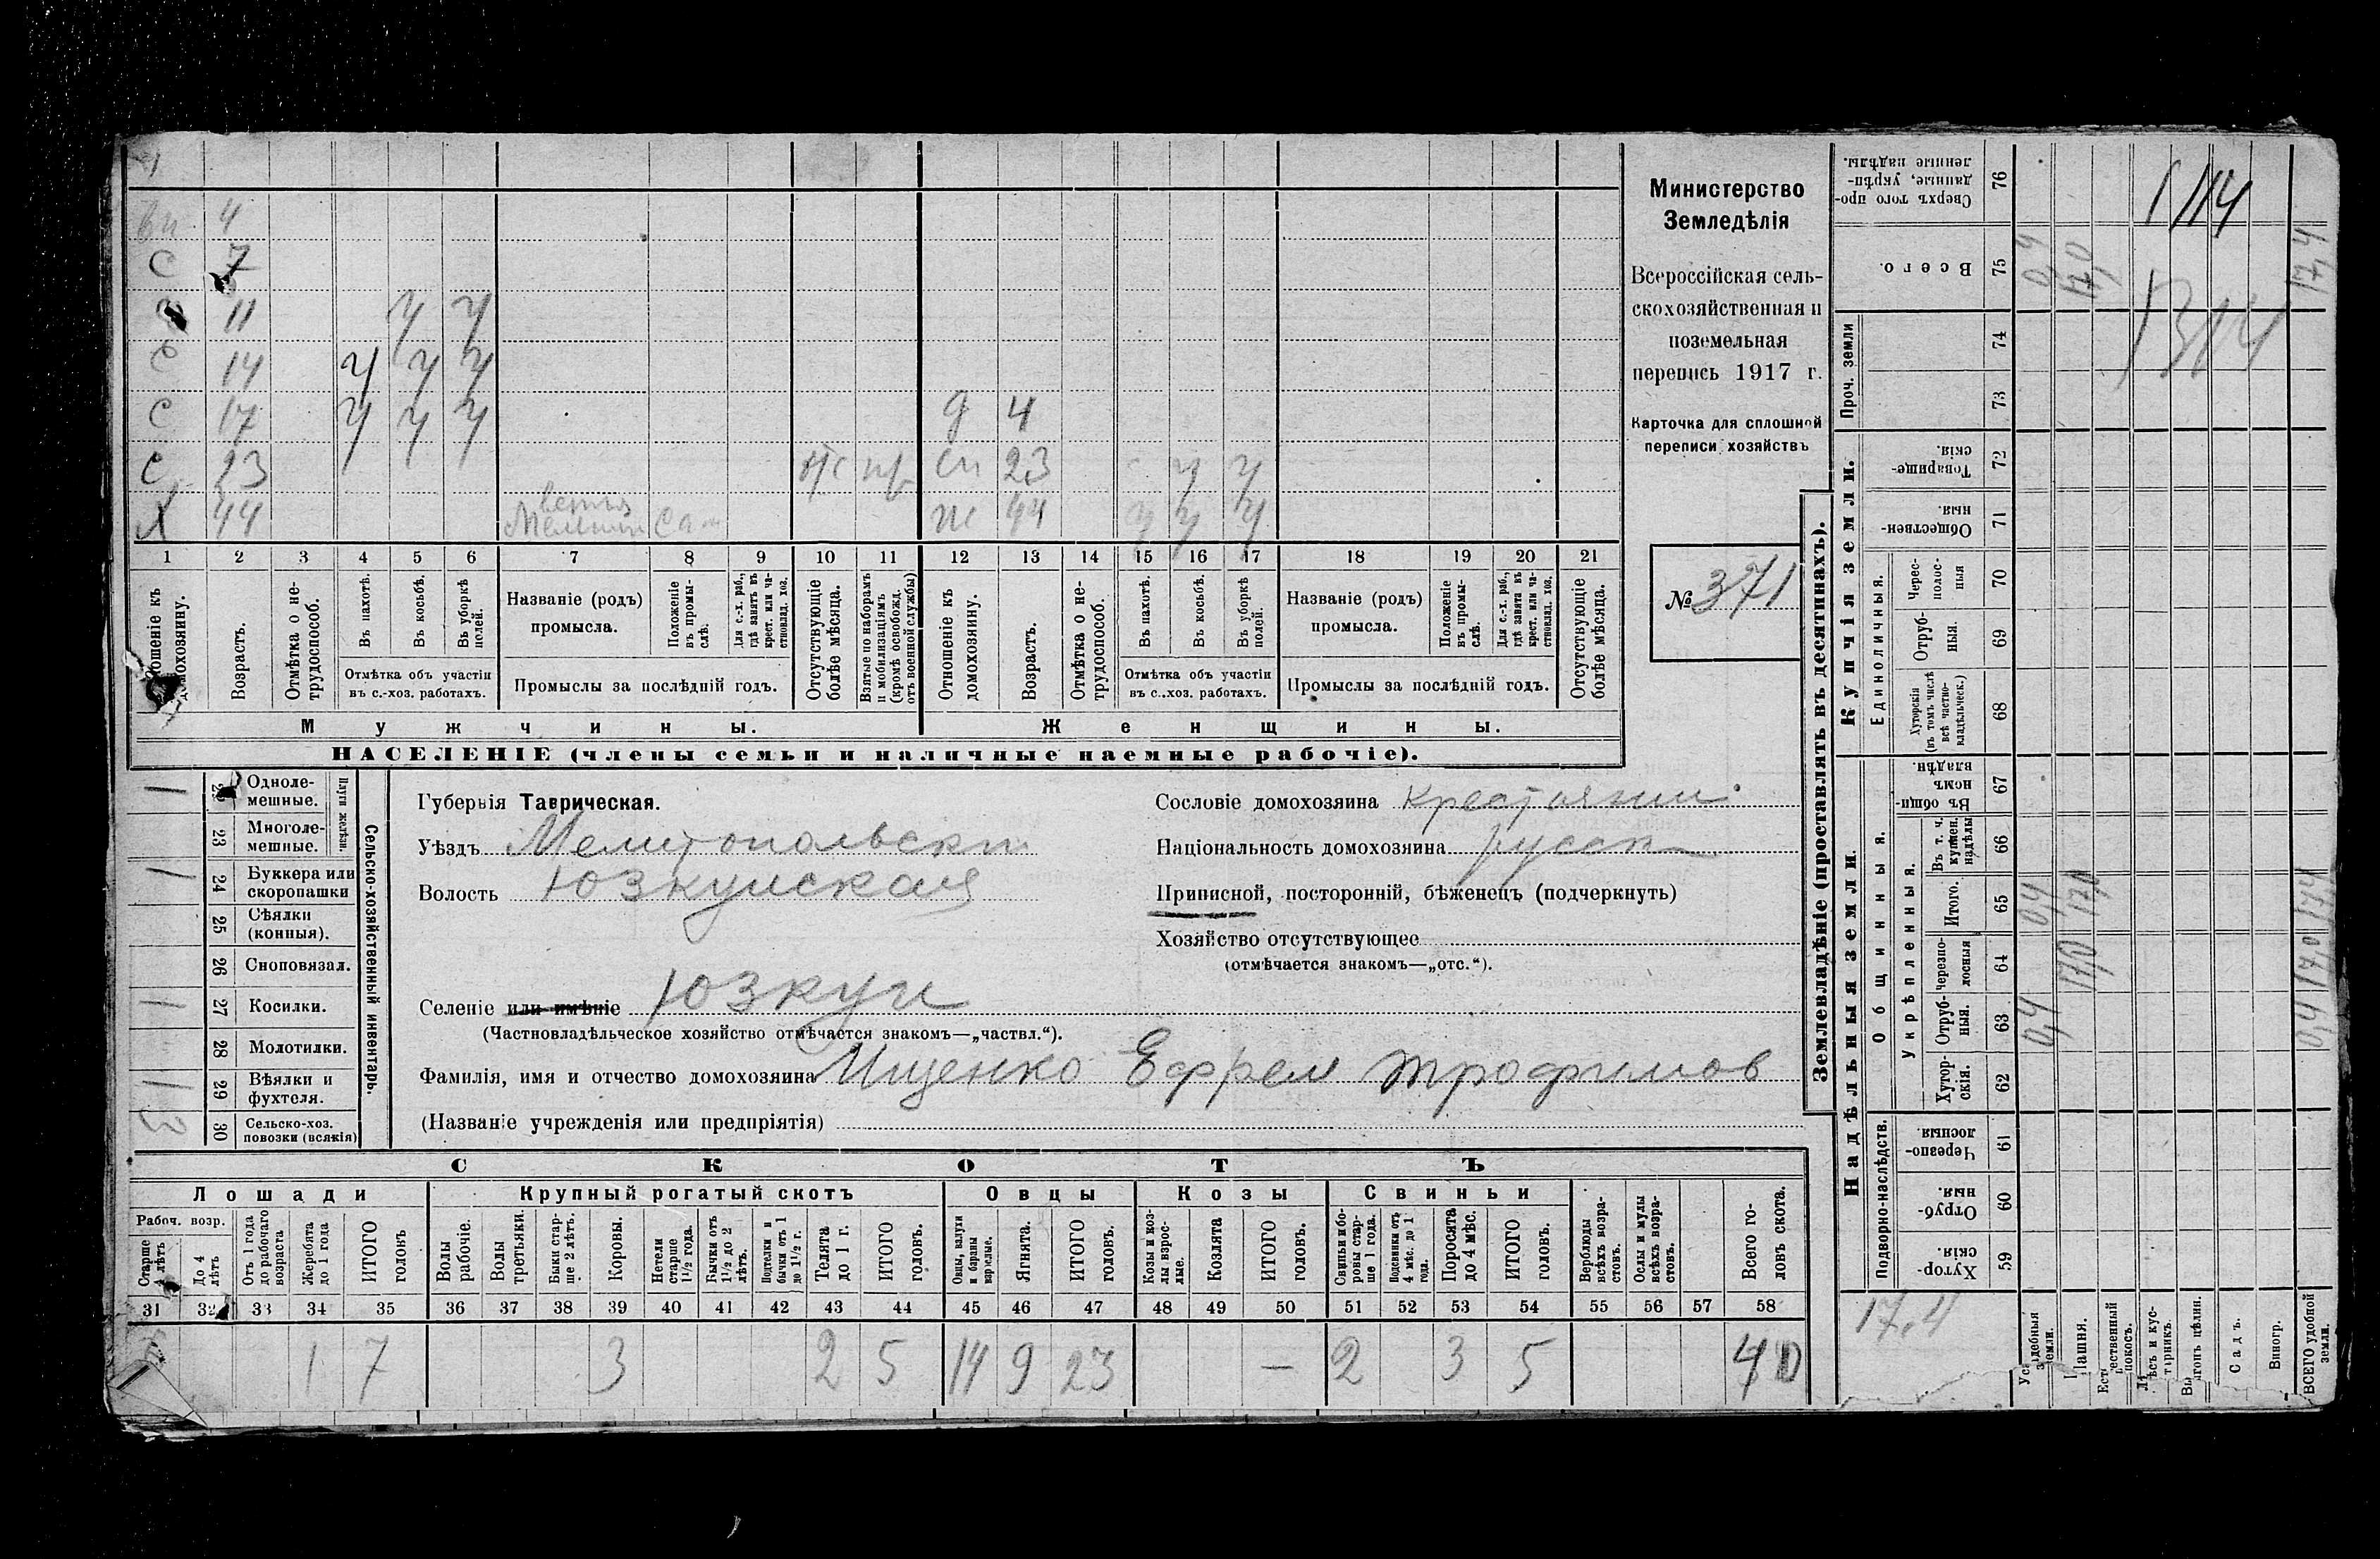 вн 4
С 7
11 у у
С 14 у у у
С 17 у у у д 4
С 23 отс сн 23 у у
Х 44 ж 44 у у у
1 2 3 4 5 6 7 8 9 10 11 12 13 14 15 16 17 18 19 20 21
Отношеніе къ домохозяину.
Возрастъ.
Отмѣтка о нетрудоспособ.
Въ пахотѣ.
Въ косьбѣ.
Въ уборкѣ полей.
Отмѣтка объ участіи въ с.-хоз. работахъ.
Названіе (родъ) промысла.
Положеніе въ промыслѣ.
Для с.-х. раб., гдѣ занятъ въ крест. или частновлад. хоз.
Промыслы за послѣдній годъ.
Отсутствующіе болѣе мѣсяца.
Взятые по наборамъ и мобилизаціямъ (кромѣ освобожд. отъ военной службы)
Отношеніе къ домохозяину.
Возрастъ.
Отмѣтка о нетрудоспособ.
Въ пахотѣ.
Въ косьбѣ.
Въ уборкѣ полей.
Отмѣтка объ участіи въ с.-хоз. работахъ.
Названіе (родъ) промысла.
Положеніе въ промыслѣ.
Для с.-х. раб., гдѣ занята въ крест. или частновлад. хоз.
Промыслы за послѣдній годъ.
Отсутствующіе болѣе мѣсяца.
Мужчины.
Женщины.
НАСЕЛЕНІЕ (члены семьи и наличные наемные рабочіе).
Министерство
Земледѣлія
Всероссійская сель-
скохозяйственная и
поземельная
перепись 1917 г.
Карточка для сплошной
переписи хозяйствъ
№ 371
Сельско-хозяйственный инвентарь.
Плуги желѣзн.
Одноле-
мешные. 1
23 Многоле-
мешные.
24 Буккера или
скоропашки 1
25 Сѣялки
(конныя).
26 Сноповязал.
27 Косилки. 1
28 Молотилки.
29 Вѣялки и
фухтеля. 1
30 Сельско-хоз.
повозки (всякія) 3
Губернія Таврическая.
Уѣздъ Мелитопольскій
Волость Юзкуйская
Селеніе или имѣніе Юзкуи
(Частновладѣльческое хозяйство отмѣчается знакомъ—„частвл.“).
Фамилія, имя и отчество домохозяина Ищенко Ефрем Трофимов
(Названіе учрежденія или предпріятія)
Сословіе домохозяина крестьянин
Національность домохозяина русск
Приписной, посторонній, бѣженецъ (подчеркнуть)
Хозяйство отсутствующее
(отмѣчается знакомъ—„отс.“).
СКОТЪ
Лошади
Крупный рогатый скотъ
Овцы
Козы
Свиньи
Рабоч. возр.
Старше 4 лѣтъ
До 4 лѣтъ
Отъ 1 года до рабочаго возраста
Жеребята до 1 года
ИТОГО головъ
Волы рабочіе.
Волы третьяки.
Быки старше 2 лѣтъ.
Коровы.
Нетели старше 1½ года.
Бычки отъ 1½ до 2 лѣтъ.
Подтелки и бычки отъ 1 до 1½ г.
Телята до 1 г.
ИТОГО головъ.
Овцы, валухи и бараны взрослые.
Ягнята.
ИТОГО головъ.
Козы и козлы взрослые.
Козлята
ИТОГО головъ.
Свиньи и боровы старше 1 года.
Подсвинки отъ 4 мѣс. до 1 года.
Поросята до 4 мѣс.
ИТОГО головъ.
Верблюды всѣхъ возрастовъ.
Ослы и мулы всѣхъ возрастовъ.
Всего головъ скота.
31 32 33 34 35 36 37 38 39 40 41 42 43 44 45 46 47 48 49 50 51 52 53 54 55 56 57 58
1 7 3 2 5 14 9 23 — 2 3 5 40
Землевладѣніе (проставлять въ десятинахъ).
Купчія земли.
Надѣльныя земли.
Сверхъ того проданные, укрѣпленные надѣлы. 76
Всего. 75 0,4 17,0 17,4
Проч. земли 74 73
Товарищескія. 72
Общественныя. 71
Единоличныя.
Чересполосныя 70
Отрубныя. 69
Хуторскія (въ томъ числѣ всѣ частновладѣльческ.) 68
Общинныя.
Въ общинномъ владѣн. 67
Укрѣпленныя.
Въ т. ч. куплен. надѣлы 66
Итого. 65 0,4 17,0 17,4
черезполосныя 64 17,0 17,0
Отрубныя. 63 0,4 0,4
Хуторскія. 62
Подворно-наслѣдств.
Черезполосныя. 61
Отрубныя. 60
Хуторскія. 59
17,4
Усадебныя земли.
Пашня.
Естественный покосъ.
Лѣсъ и кустарникъ.
Выгонъ цѣлин.
Садъ.
Виногр.
ВСЕГО удобной земли.